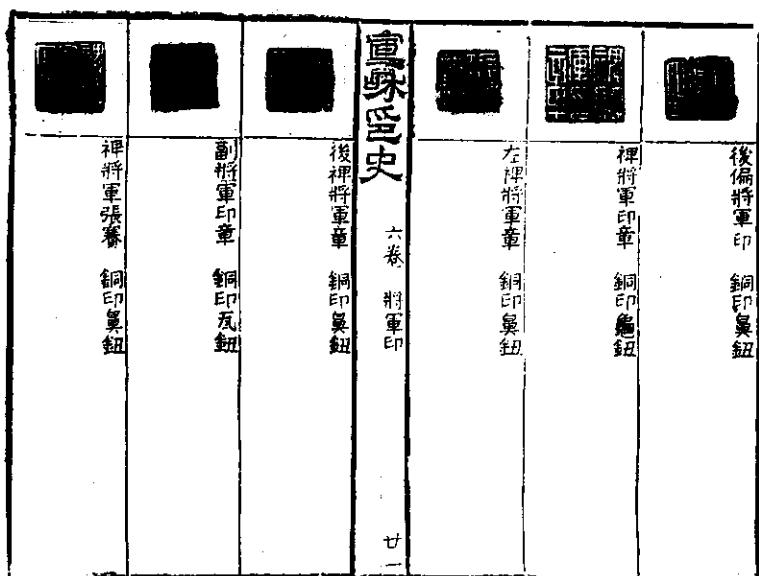 後偏將軍印 銅印鼻鈕
裨將軍印章 銅印龜鈕
左裨將軍章 銅印鼻鈕
宣和印史 六卷 將軍印 廿一
後裨將軍章 銅印鼻鈕
副將軍印章 銅印瓦鈕
裨將軍張賽 銅印鼻鈕